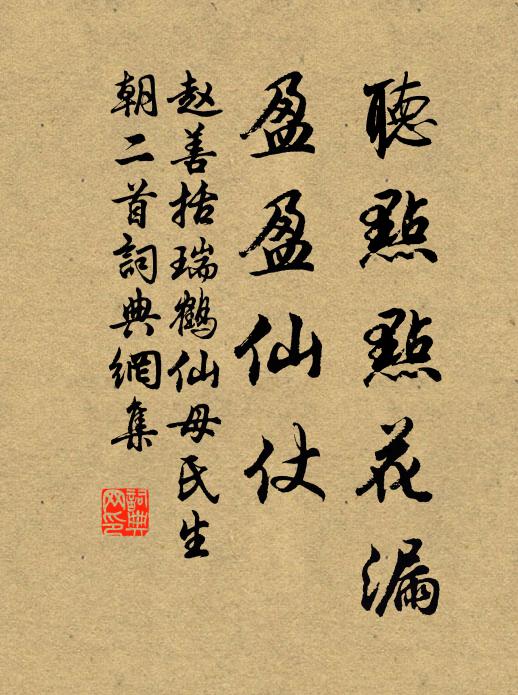 聽點點花漏
盈盈仙仗
赵善括瑞鶴仙母氏生
朝二首詞典網集
詞典网印